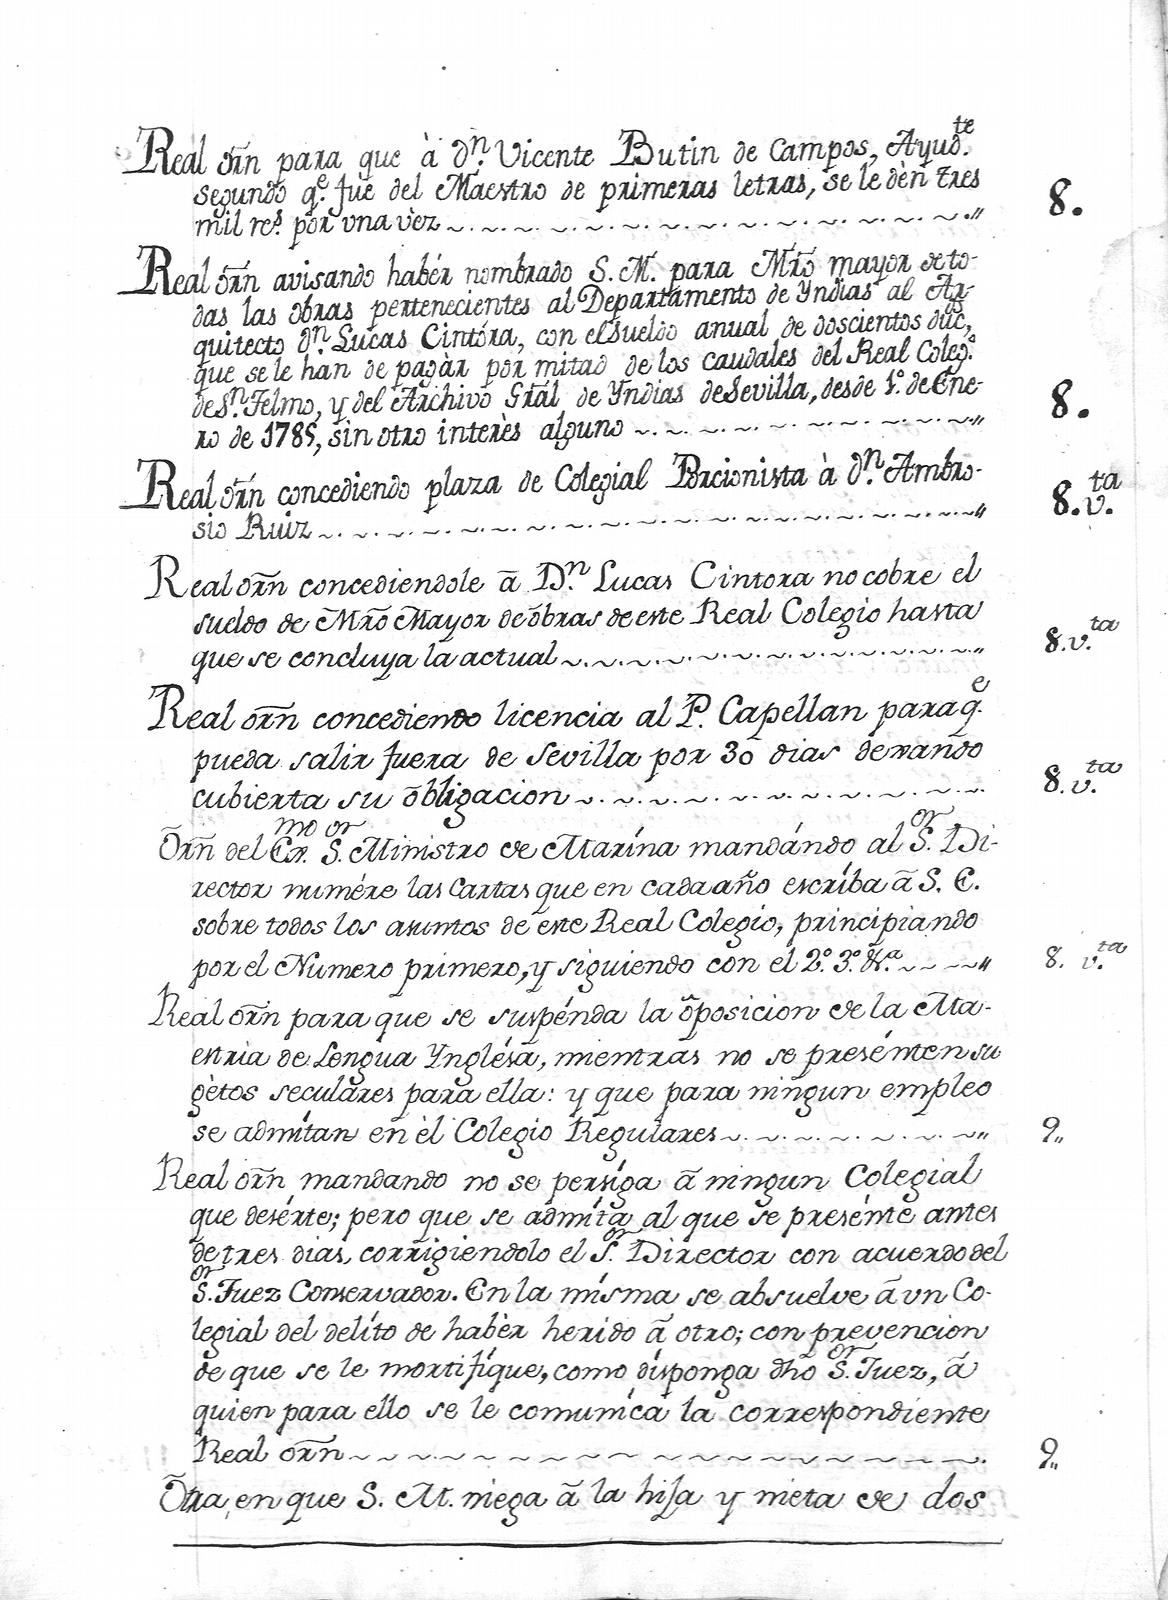 Real orñ para que à dⁿ. Vicente Butin de Campos, Ayudᵗᵉ.
segundo qᵉ. fue del Maestro de primeras letras, se le dèn tres
mil reˢ. por vna vèz ~.~.~.~.~.~.~.~.~.~.~.~.~.~.~.~." 8.
Real orñ avisando habér nombrado S. M. para Mrõ mayor de to-
das las obras pertenecientes al Departamento de Yndias al Ar-
quitecto dⁿ. Lucas Cintóra, con el sueldo anual de doscientos ducˢ,
que se le han de pagàr por mitad de los caudales del Real Colegᵒ.
de Sⁿ. Telmo, y del Archivo Grãl de Yndias de Sevilla, desde 1º. de Ene-
ro de 1785, sin otro interès alguno ~.~.~.~.~.~.~.~.~.~.~" 8.
Real orñ concediendo plaza de Colegial Porcionista à dⁿ. Ambro-
sio Ruiz ~.~.~.~.~.~.~.~.~.~.~.~.~.~.~.~.~.~.~" 8.v.ᵗᵃ
Real orñ concediendole ã Dⁿ. Lucas Cintora no cobre el
sueldo de Mrõ Mayor de õbras de este Real Colegio hasta
que se concluya la actual ~.~.~.~.~.~.~.~.~.~.~.~.~" 8.v.ᵗᵃ
Real orñ concediendo licencia al P. Capellan para qᵉ.
pueda salir fuera de Sevilla por 30 dias dexando
cubierta su õbligacion ~.~.~.~.~.~.~.~.~.~.~.~.~ 8.v.ᵗᵃ
Õrñ del Ex.ᵐᵒ S.ᵒʳ Ministro de Marína mandándo al S.ᵒʳ Di-
rector numére las Cartas que en cada año escríba ã S. E.
sobre todos los asuntos de este Real Colegio, principiando
por el Numero primero, y siguiendo con el 2º. 3º. &ª. ~ ~ ~ ~" 8. v.ᵗᵃ
Real orñ para que se suspénda la õposicion de la Ma-
estria de Lengua Ynglésa, mientras no se presénten su
gètos seculàres para ella: y que para ningun empleo
se admítan en èl Colegio Regulares ~.~.~.~.~.~.~.~" 9„
Real orñ mandando no se persíga ã ningun Colegial
que desérte; pero que se admíta al que se presénte antes
de tres dias, corrigiendolo el S.ᵒʳ Director con acuerdo del
S.ᵒʳ Juez Conservador. En la mísma se absuelve ã vn Co-
legial del delíto de habèr herido ã otro; con prevencion
de que se le mortifíque, como dispónga dhõ S.ᵒʳ Juez, ã
quien para ello se le comuníca la correspondiente
Real orñ ~ ~ ~ ~ ~ ~ ~ ~ ~ ~ ~ ~ ~ ~ ~ ~ . 9„
Õtra, en que S. M. niega ã la hija y nieta de dos